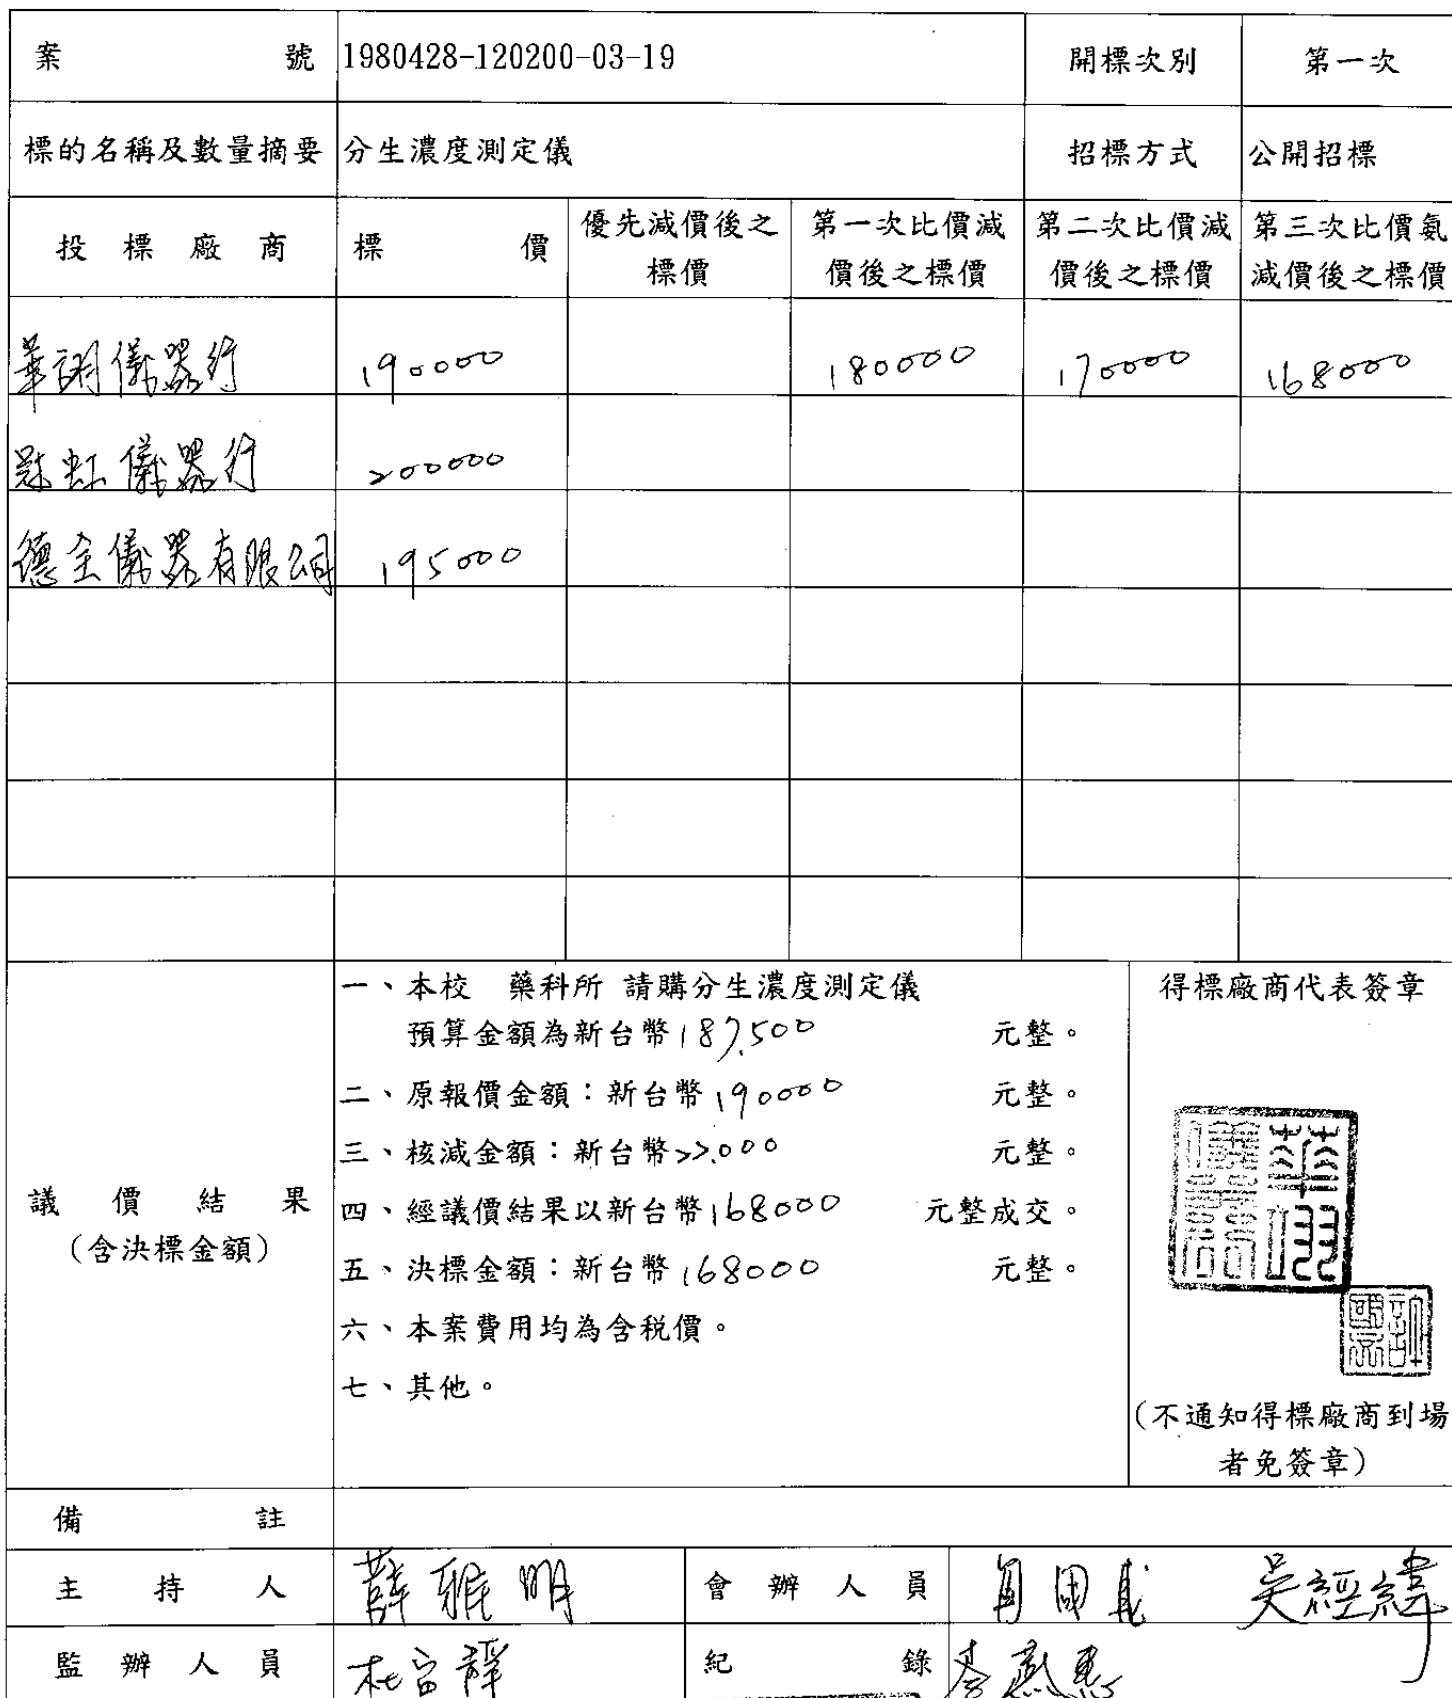 案 號 1980428-120200-03-19 開標次別 第一次
標的名稱及數量摘要 分生濃度測定儀 招標方式 公開招標
投標廠商 標價 優先減價後之標價 第一次比價減價後之標價 第二次比價減價後之標價 第三次比價氨減價後之標價
華詡儀器行 190000 180000 170000 168000
冠虹儀器行 200000
德全儀器有限公司 195000
議價結果
(含決標金額)
一、本校 藥科所 請購分生濃度測定儀
預算金額為新台幣187,500 元整。
二、原報價金額：新台幣190000 元整。
三、核減金額：新台幣22,000 元整。
四、經議價結果以新台幣168000 元整成交。
五、決標金額：新台幣168000 元整。
六、本案費用均為含稅價。
七、其他。
得標廠商代表簽章
(不通知得標廠商到場
者免簽章)
備 註
主持人 薛雅明 會辦人員 吳經緯
監辦人員 紀錄